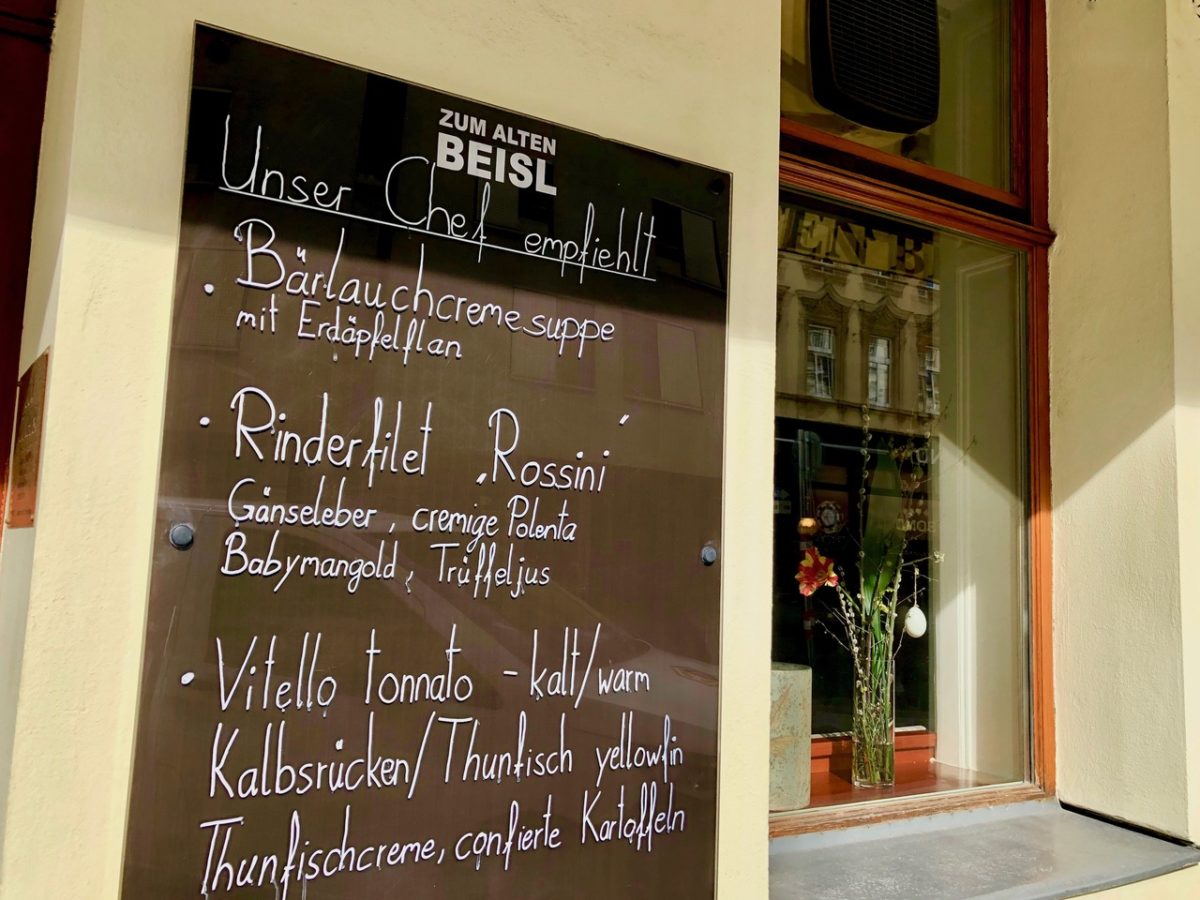 ZUM ALTEN
BEISL
Unser Chef empfiehlt
• Bärlauchcremesuppe
mit Erdäpfelflan
• Rinderfilet „Rossini“
Gänseleber, cremige Polenta
Babymangold, Trüffeljus
• Vitello tonnato - kalt/warm
Kalbsrücken/Thunfisch yellowfin
Thunfischcreme, confierte Kartoffeln
EN B